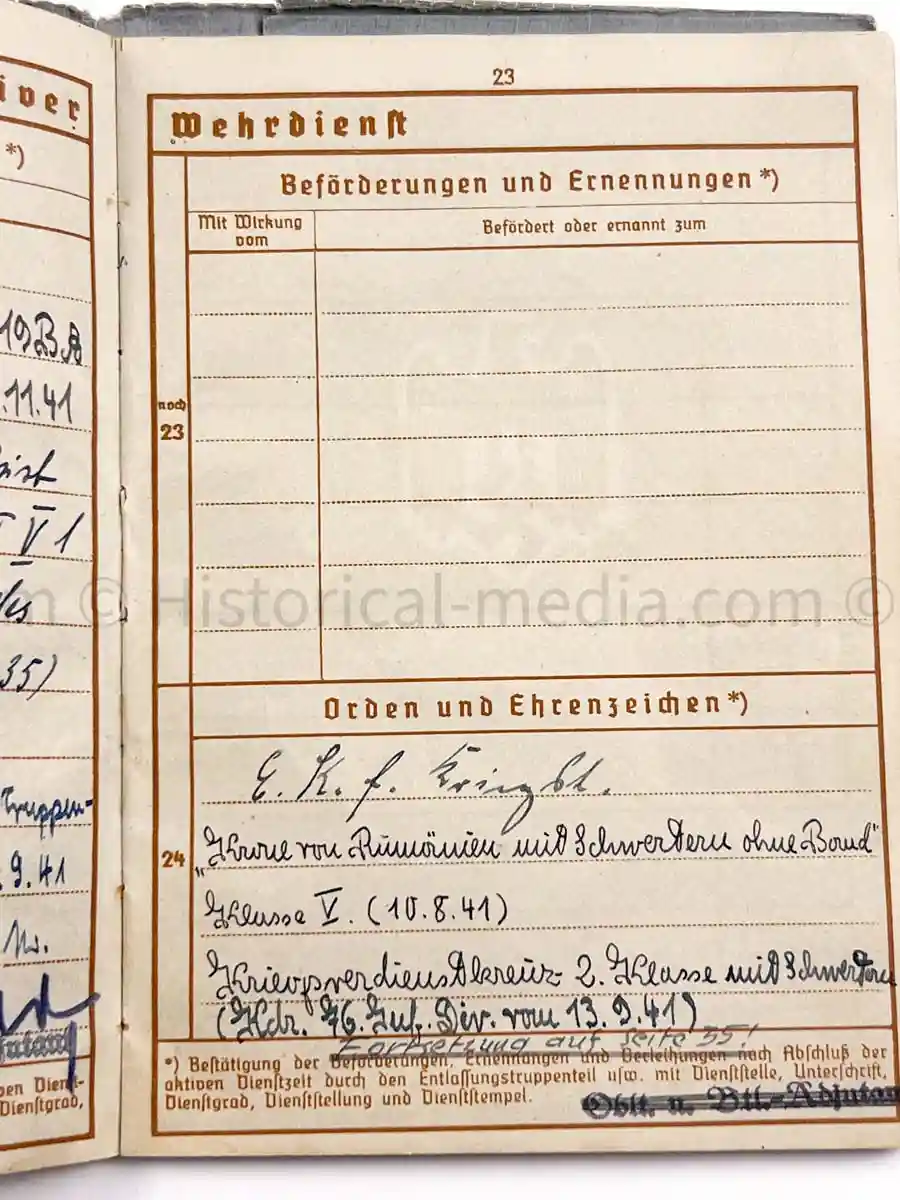 iver
*)
19 B A
.11.41
V 1
des
35)
Truppen-
.9.41
jutant
ben Dienst-
Dienstgrad,
23
Wehrdienst
Beförderungen und Ernennungen*)
Mit Wirkung
vom
Befördert oder ernannt zum
noch
23
© Historical-media.com ©
Orden und Ehrenzeichen*)
24
E. K. f. Kriegst.
"Krone von Rumänien mit Schwertern ohne Band"
Klasse V. (10.8.41)
Kriegsverdienstkreuz 2. Klasse mit Schwertern
(Kdr. 76. Inf. Div. vom 13.9.41)
Fortsetzung auf Seite 35!
*) Bestätigung der Beförderungen, Ernennungen und Verleihungen nach Abschluß der
aktiven Dienstzeit durch den Entlassungstruppenteil usw. mit Dienststelle, Unterschrift,
Dienstgrad, Dienststellung und Dienststempel.
Oblt. u. Btl.-Adjutant